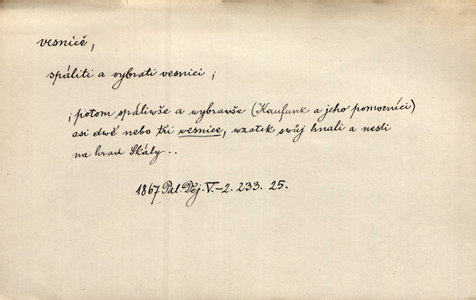 vesnice,
spáliti a vybrati vesnici;
; potom spálivše a wybrawše (Kaufunk a jeho pomocníci)
asi dwě nebo tři wesnice, wzatek swůj hnali a nesli
na hrad Skály..
1867 Pal. Děj. V.-2. 233. 25.